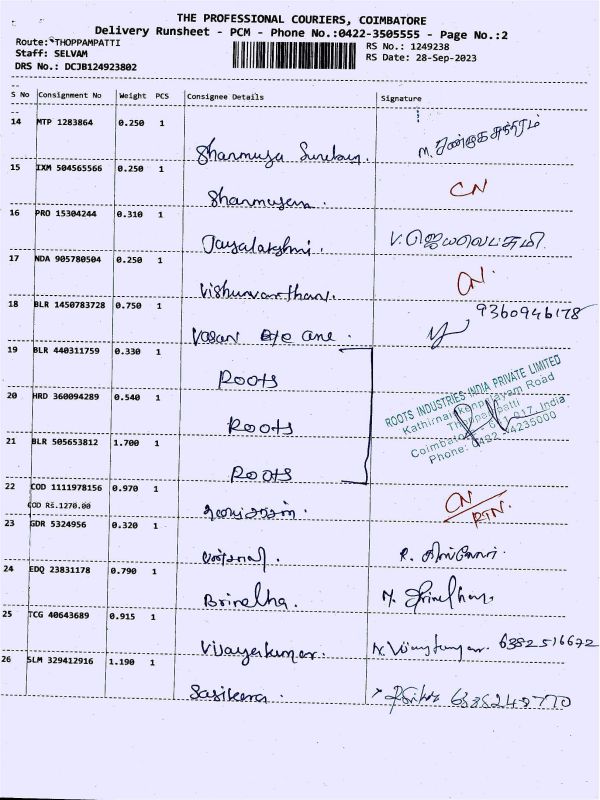 THE PROFESSIONAL COURIERS, COIMBATORE
Delivery Runsheet - PCM - Phone No.:0422-3505555 - Page No.:2
Route: THOPPAMPATTI
RS No.: 1249238
Staff: SELVAM
RS Date: 28-Sep-2023
DRS No.: DCJB124923802
S No Consignment No Weight PCS Consignee Details Signature
14 MTP 1283864 0.250 1
Shanmuga
M.
15 IXM 504565566 0.250 1
CN
16 PRO 15304244 0.310 1
Jayalakshmi.
V. ஜெயலட்சுமி
17 NDA 905780504 0.250 1
CN.
18 BLR 1450783728 0.750 1
9360946178
Vasan Eye Care.
19 BLR 440311759 0.330 1
Roots
ROOTS INDUSTRIES INDIA PRIVATE LIMITED
20 HRD 360094289 0.540 1
Roots
21 BLR 505653812 1.700 1
Roots
Phone: 0422 - 4235000
22 COD 1111978156 0.970 1
COD RS.1270.00
CN
RTN.
23 GDR 5324956 0.320 1
R.
24 EDQ 23831178 0.790 1
Brindha.
25 TCG 40643689 0.915 1
Vijayakumar.
6382516672
26 SLM 329412916 1.190 1
Sasikala.